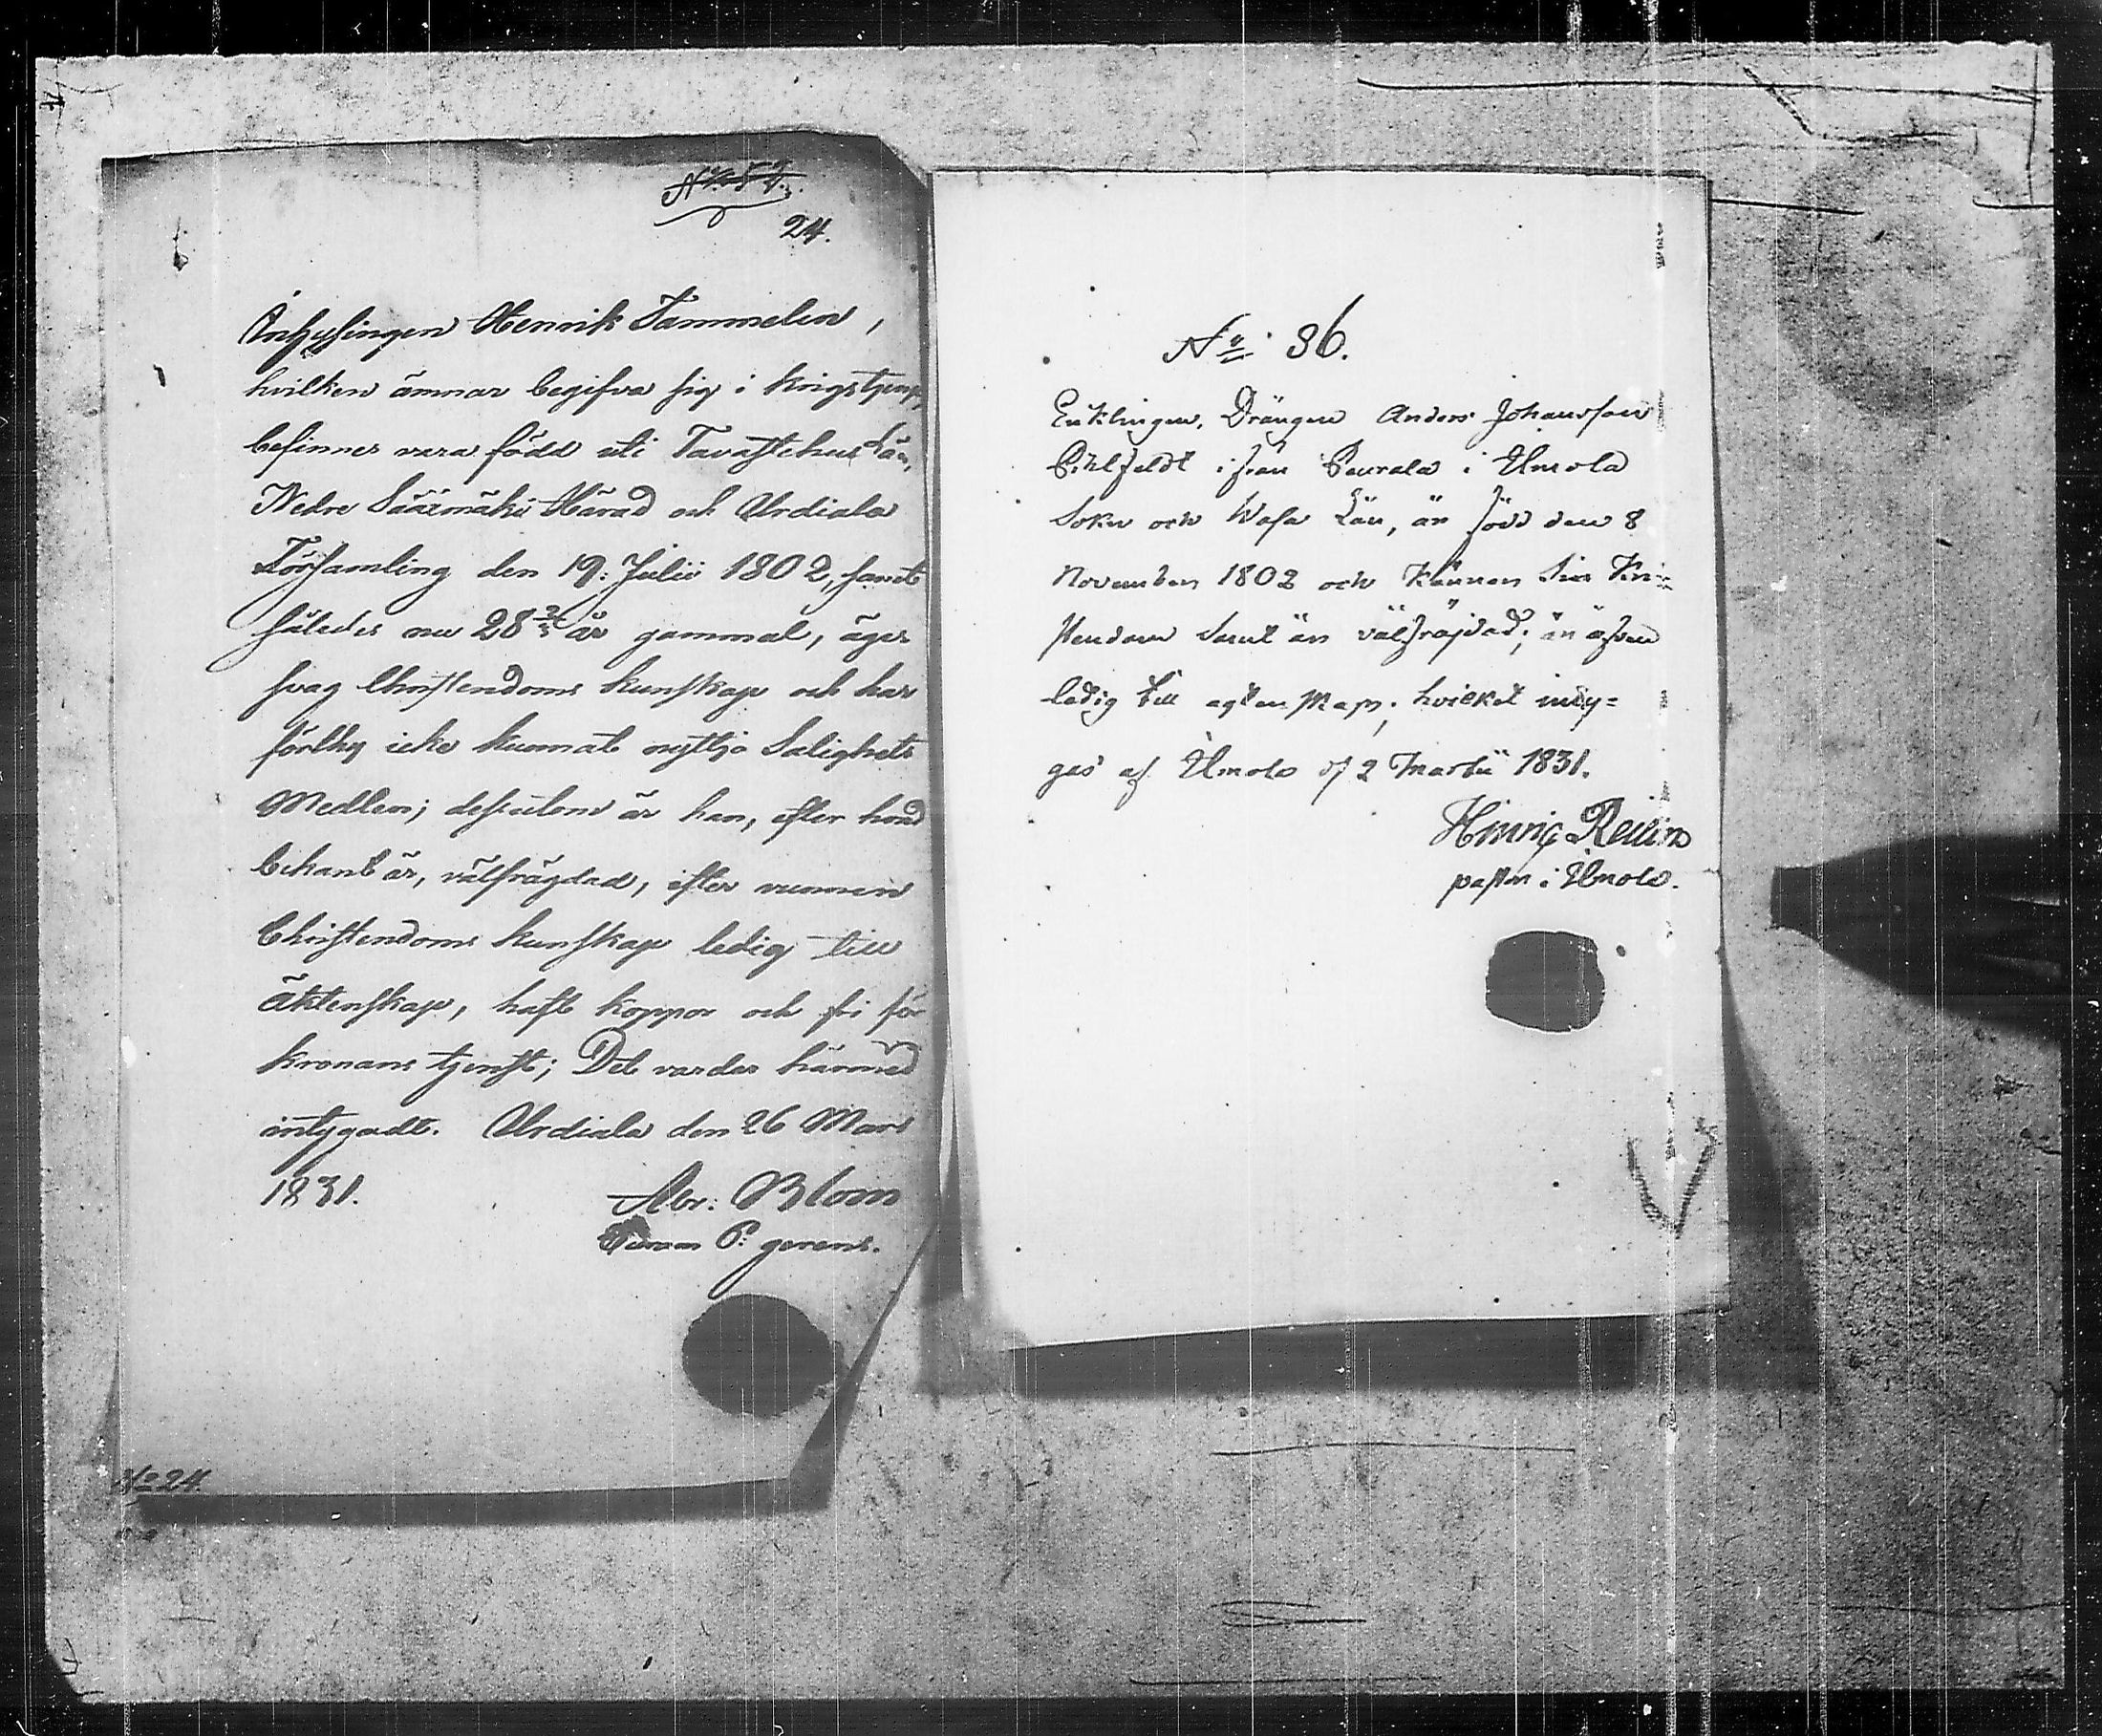 24.
Inhysingen Henrik Tammelin,
hvilken ämnar begifva sig i Krigstjenst,
befinnes vara född uti Tavastehus Län,
Nedre Sääxmäki Härad och Urdiala
Församling den 19. Julii 1802, samt
således nu 28 2/3 år gammal, äger
svag Christendoms kunskap och har
förthy icke kunnat nyttja Salighets
Medlen; dessutom är han, efter hvad
bekant är, välfrägdad, efter vunnen
Christendoms kunskap ledig till
Äktenskap, haft koppor och fri för
kronans tjenst; Det varder härmed
intygadt. Urdiala den 26 Mars
1831. Abr: Blom
P: gerens.
No 24.
No 36.
Enklingen, Drängen Anders Johansson
Pihlfeldt ifrån Peurala i Ilmola
Sokn och Wasa Län, är född den 8
November 1802 och känner sin Kri-
stendom samt är välfräjdad; är äfven
ledig till ägtenskap; hvilket inty=
gas af Ilmola d 2 Martii 1831.
Henric
pastor i Ilmola.